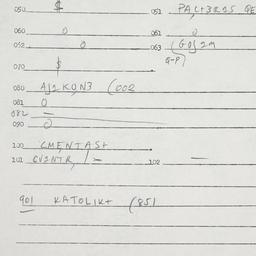 050 $ 051 PAL+3R15 GE
060 0 061 0
052 0 063 (G0J2M
070 $ G-P)
080 AJ1KON3 (002
081 0
082 —
090 0
100 CMENTAS+
101 CV2NTR, 1 — 102 —
901 KATOLIK+ (851